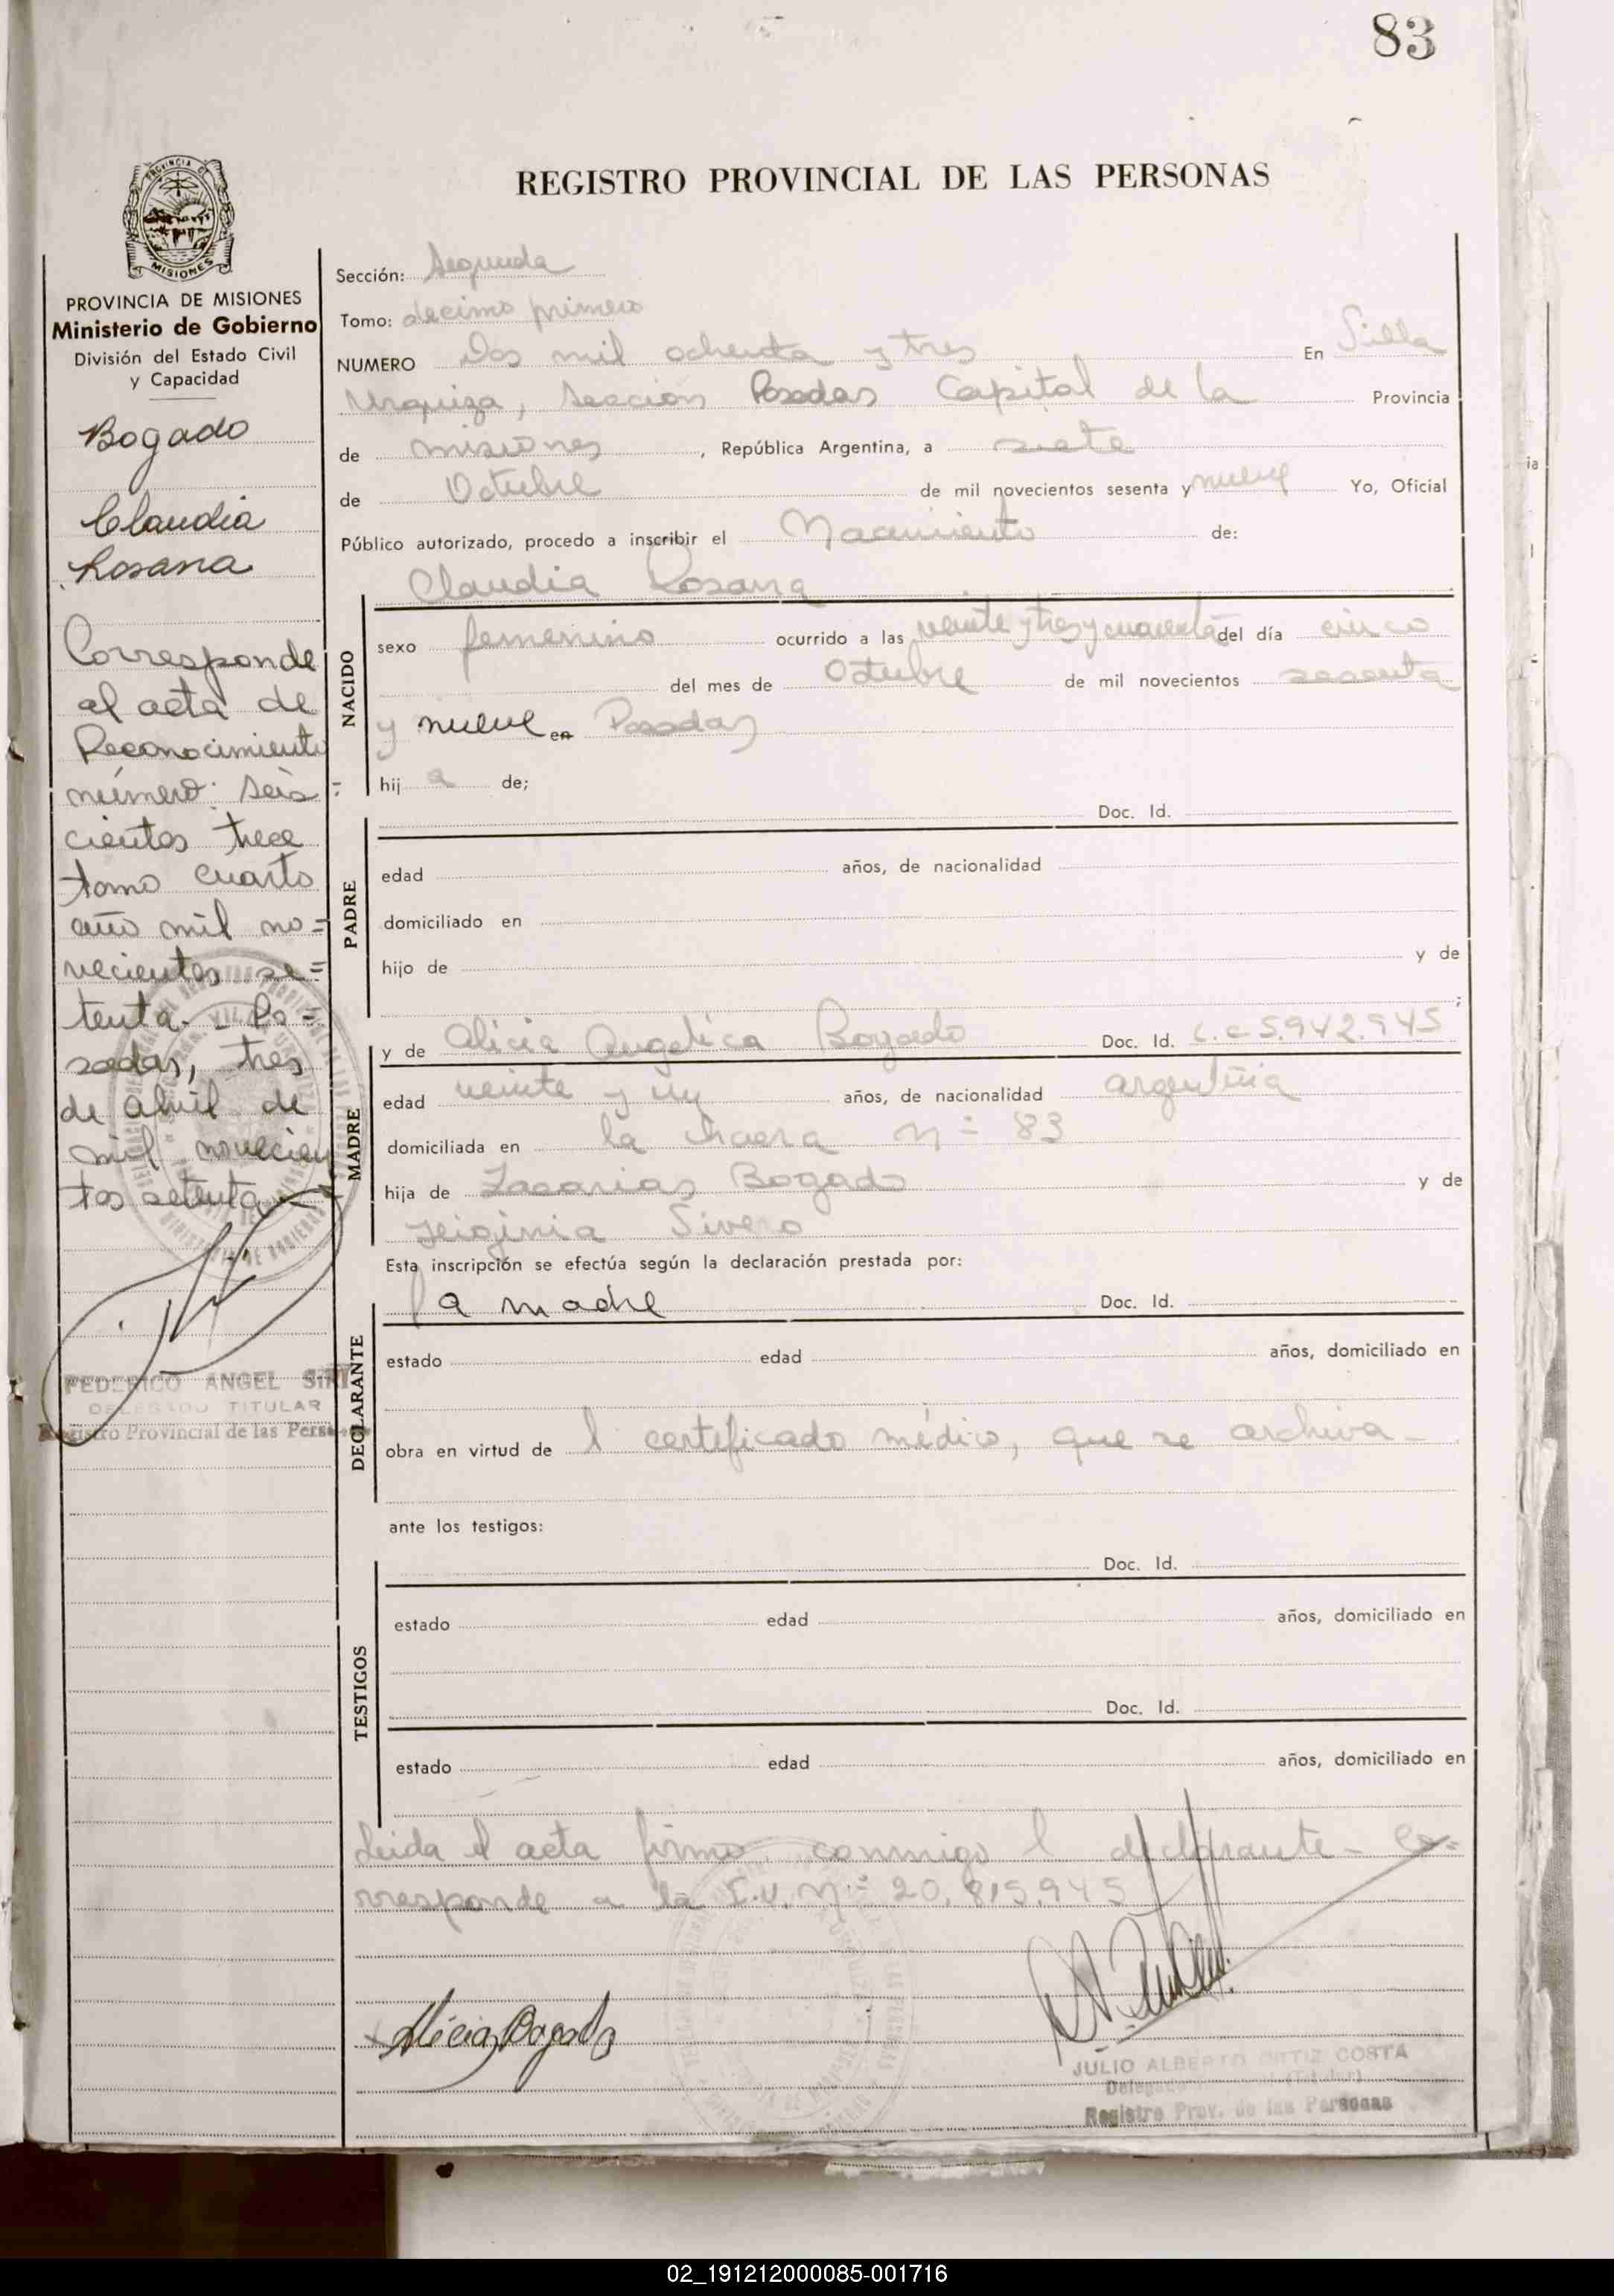 83
REGISTRO PROVINCIAL DE LAS PERSONAS
PROVINCIA
MISIONES
PROVINCIA DE MISIONES
Ministerio de Gobierno
División del Estado Civil
y Capacidad
Bogado
Claudia
Rosana
Corresponde
al acta de
Reconocimiento
número: seis =
cientos trece
tomo cuarto
año mil no=
vecientos se=
tenta. - Po-
sadas, tres
de abril de
mil novecien
tos setenta
FEDERICO ANGEL
DELEGADO TITULAR
Registro Provincial de las Perso
Sección: Segunda
Tomo: decimo primero
NUMERO Dos mil ochenta y tres En Silla
Urquiza, Sección Posadas Capital de la Provincia
de misiones, República Argentina, a siete
de Octubre de mil novecientos sesenta y nueve Yo, Oficial
Público autorizado, procedo a inscribir el Nacimiento de:
Claudia Rosana
NACIDO
sexo femenino ocurrido a las veinte y tres y cuarenta del día cinco
del mes de Octubre de mil novecientos sesenta
y nueve en Posadas
hij a de;
Doc. Id.
PADRE
edad años, de nacionalidad
domiciliado en
hijo de y de
;
MADRE
y de Alicia Angelica Bogado Doc. Id. L.C 5.942.945
edad veinte y un años, de nacionalidad argentina
domiciliada en la chacra Nº 83
hija de Zacarias Bogado y de
Sivero
Esta inscripción se efectúa según la declaración prestada por:
la madre Doc. Id.
DECLARANTE
estado edad años, domiciliado en
obra en virtud de l certificado médico, que se archiva -
ante los testigos:
TESTIGOS
Doc. Id.
estado edad años, domiciliado en
Doc. Id.
estado edad años, domiciliado en
Leida el acta firma conmigo l declarante - Co=
rresponde a la Nº 20.815.945
Alicia Bogado
JULIO ALBERTO ORTIZ COSTA
Registro Prov. de las Personas
02_191212000085-001716